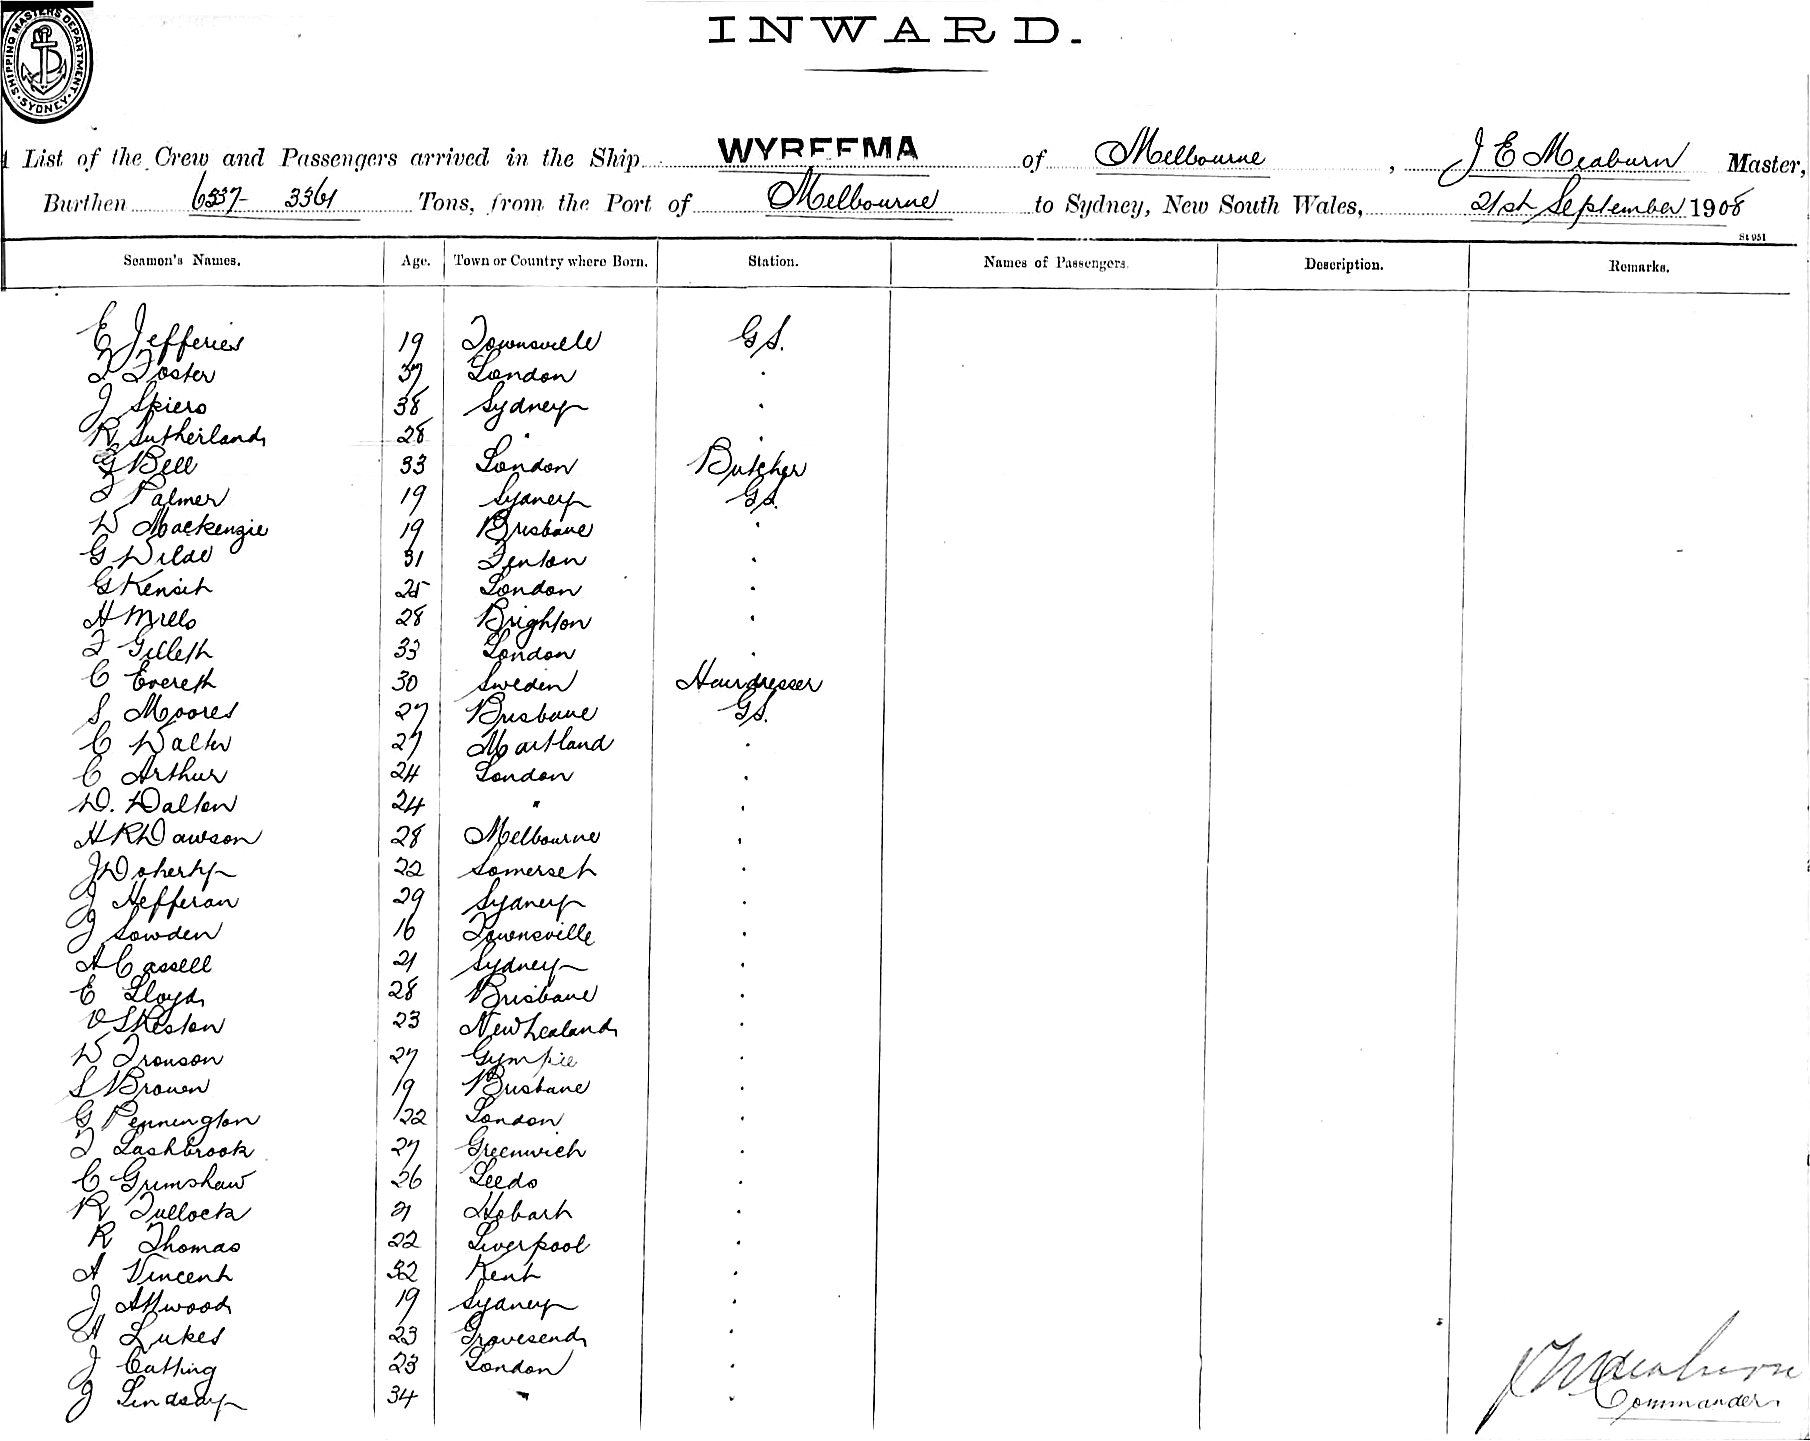 INWARD.
SHIPPING MASTERS DEPARTMENT
SYDNEY
List of the Crew and Passengers arrived in the Ship WYREEMA of Melbourne, J E Meaburn Master,
Burthen 6337- 3361 Tons, from the Port of Melbourne to Sydney, New South Wales, 21st September 1908
St 951
Seamen's Names. Age. Town or Country where Born. Station. Names of Passengers. Description. Remarks.
E Jefferies 19 Townsville G S.
F Foster 37 London "
J Spiers 38 Sydney "
R Sutherland 28 " "
G Bell 33 London Butcher
F Palmer 19 Sydney GS.
W Mackenzie 19 Brisbane "
G Wilde 31 Fenton "
G Kensit 25 London "
H Mills 28 Brighton "
F Gillett 33 London "
C Everett 30 Sweden Hairdresser
S Moores 27 Brisbane GS.
C Walter 27 Maitland "
C Arthur 24 London "
W. Dalton 24 " "
H R Dawson 28 Melbourne "
J Doherty 22 Somerset "
J Hefferan 29 Sydney "
J Sowden 16 Townsville "
A Cassell 21 Sydney "
E Lloyd 28 Brisbane "
V Skeston 23 New Zealand "
W Tronson 27 Gympie "
S Brown 19 Brisbane "
G Pennington 22 London "
F Lashbrook 27 Greenwich "
C Grimshaw 26 Leeds "
R Tullock 21 Hobart "
R Thomas 22 Liverpool "
A Vincent 32 Kent "
J Attwood 19 Sydney "
H Lukes 23 Gravesend "
J Catling 23 London "
J Lindsay 34 " "
J E Meaburn
Commander